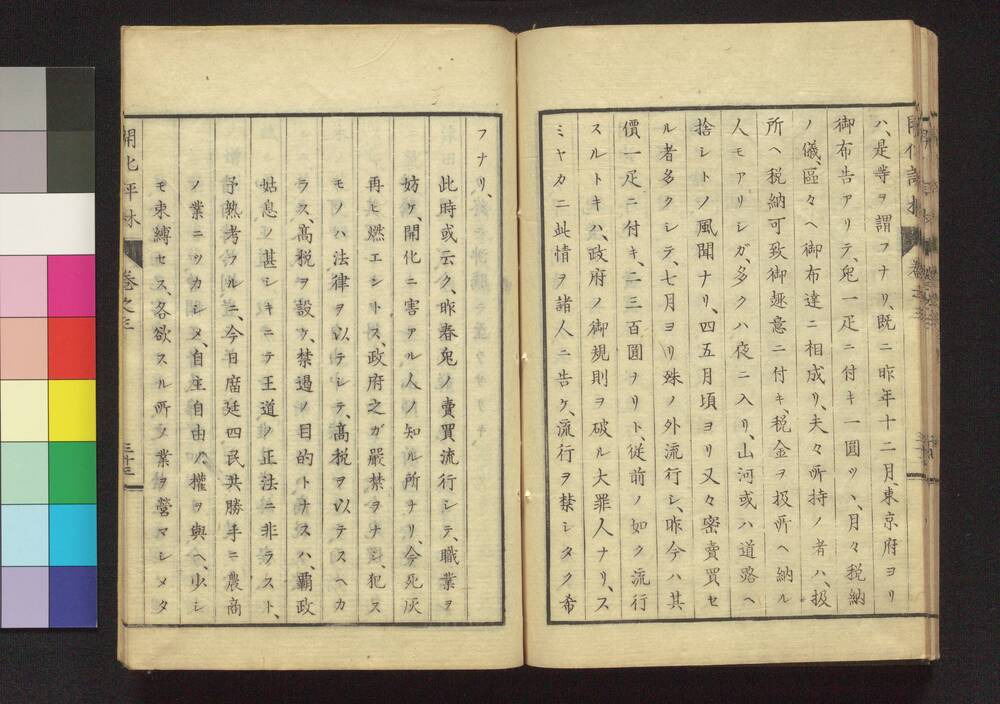 ハ、是等ヲ謂フナリ、既ニ昨年十二月、東京府ヨリ
御布告アリテ、兎一疋ニ付キ一圓ツヽ、月々税納
ノ儀、區々ヘ御布達ニ相成リ、夫々所持ノ者ハ、扱
所ヘ税納可致御趣意ニ付キ、税金ヲ扱所ヘ納ル
人モアリシガ、多クハ夜ニ入リ、山河或ハ道路ヘ
捨シトノ風聞ナリ、四五月頃ヨリ又々密賣買セ
ル者多クシテ、七月ヨリ殊ノ外流行シ、昨今ハ其
價一疋ニ付キ、二三百圓ヲリト、従前ノ如ク流行
スルトキハ、政府ノ御規則ヲ破ル大罪人ナリ、ス
ミヤカニ此情ヲ諸人ニ告ケ、流行ヲ禁シタク希
フナリ、
此時或云ク、昨春兎ノ賣買流行シテ、職業ヲ
妨ケ、開化ニ害アル人ノ知ル所ナリ、今死灰
再ヒ燃エントス、政府之ガ嚴禁ヲナシ、犯ス
モノハ法律ヲ以テシテ、高税ヲ以テスヘカ
ラス、高税ヲ設ケ、禁遏ノ目的トナスハ、覇政
姑息ノ甚シキニテ王道ノ正法ニ非ラスト、
予熟考フルニ、今日廟廷四民共勝手ニ農商
ノ業ニツカシメ、自主自由ノ權ヲ與ヘ、少シ
モ束縛セス、各欲スル所ノ業ヲ營マシメタ
開化評林
巻之三
三十三